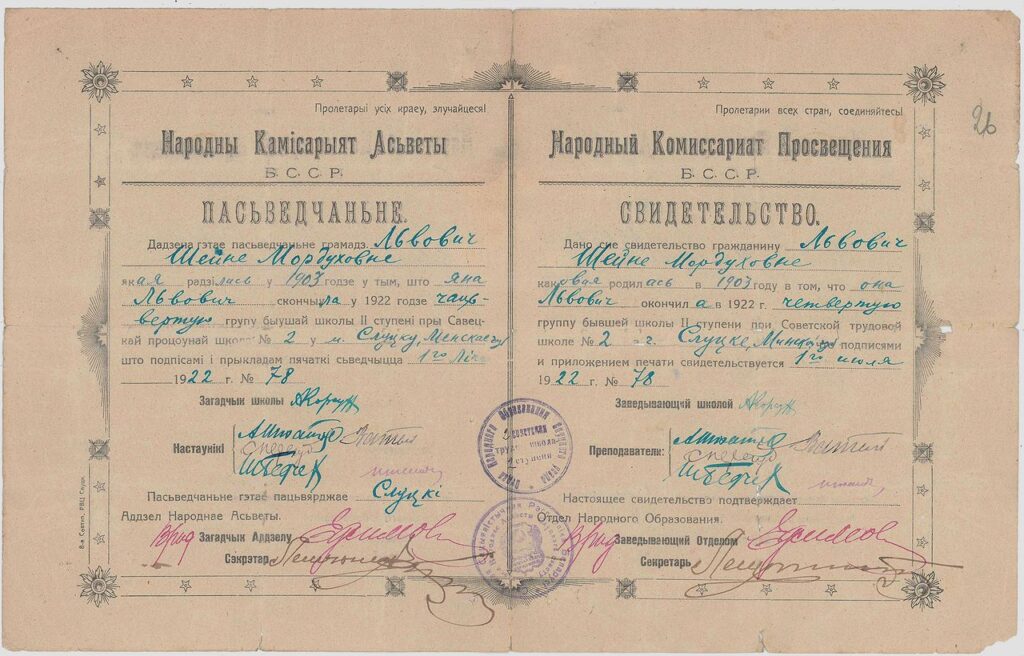 Пролетарыі усіх краеу, злучайцеся!
Народны Камісарыят Асьветы
Б. С. С. Р.
ПАСЬВЕДЧАНЬНЕ.
Дадзена гэтае пасьведчаньне грамадз. Львович
Шейне Мордуховне
якая радзілась у 1903 годзе у тым, што яна
Львович скончыла у 1922 годзе чацьвертую
групу быушай школы II ступені пры Савецкай
працоунай школе № 2 у м. Слуцку, Менскай
што подпісамі і прыкладам пячаткі сьведчыцца 1го
1922 г. № 78
Загадчык школы
Настаунікі
Пасьведчаньне гэтае пацьвярджае Слуцкі
Аддзел Народнае Асьветы.
Врид Загадчык Аддзелу Ефимов
Сэкрэтар
26
Пролетарии всех стран, соединяйтесь!
Народный Комиссариат Просвещения
Б. С. С. Р.
СВИДЕТЕЛЬСТВО.
Дано сие свидетельство гражданину Львович
Шейне Мордуховне
каковая родилась в 1903 году в том, что она
Львович окончила в 1922 г. четвертую
группу бывшей школы II ступени при Советской трудовой
школе № 2 г. Слуцке, подписями
и приложением печати свидетельствуется 1го июля
1922 г. № 78
Заведывающий школой
Преподаватели:
Настоящее свидетельство подтверждает
Отдел Народного Образования.
Врид Заведывающий Отделом Ефимов
Секретарь